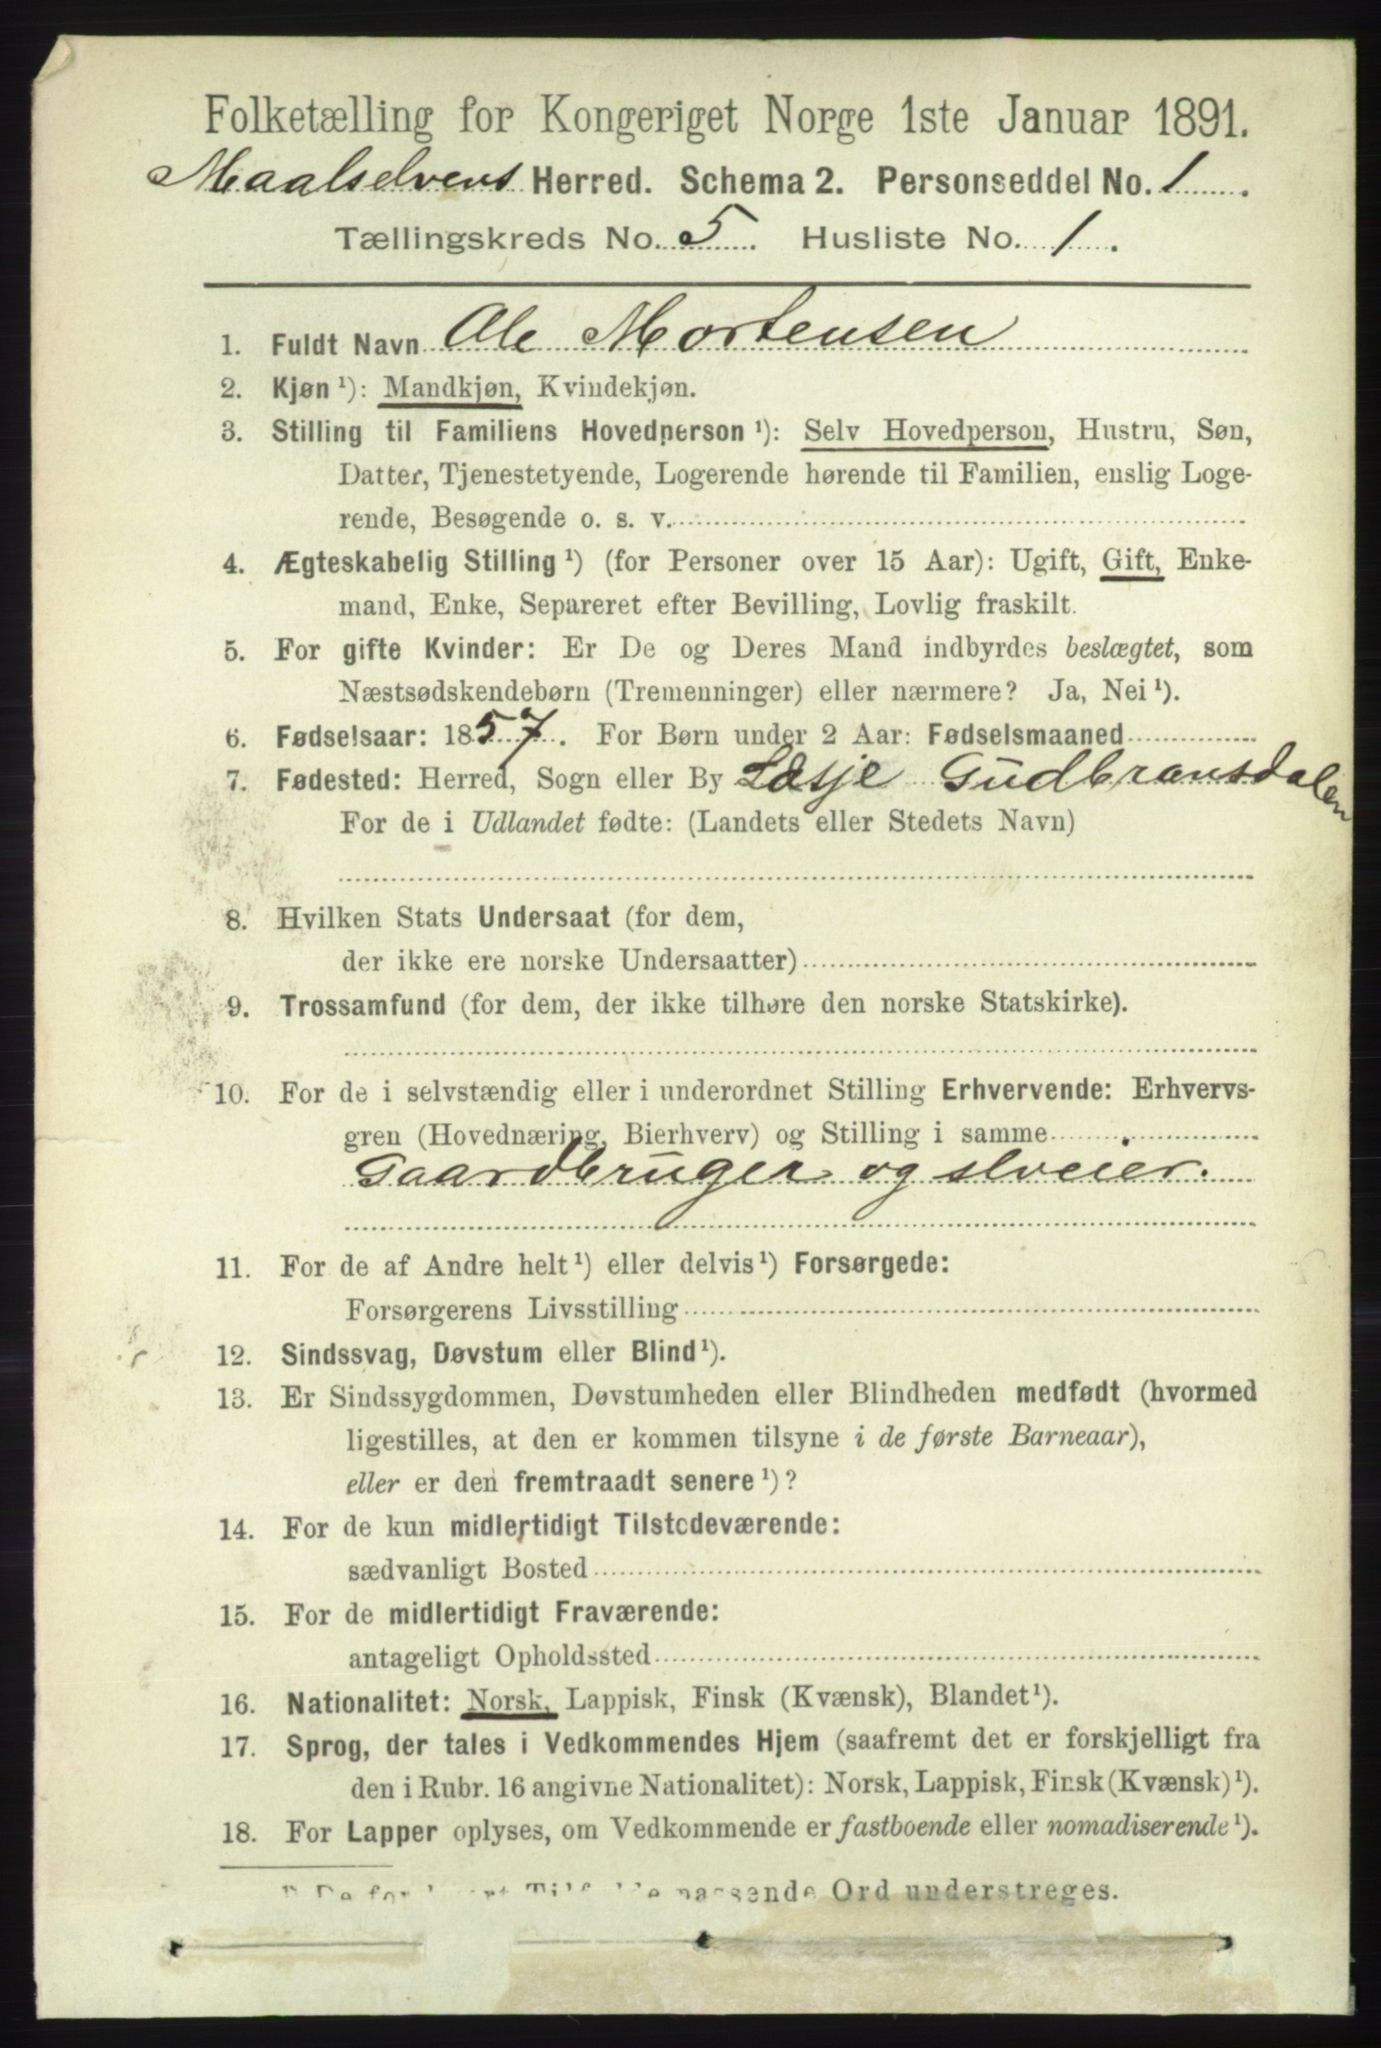 Folketælling for Kongeriget Norge 1ste Januar 1891.
Maalselvens Herred. Schema 2. Personseddel No. 1.
Tællingskreds No. 5. Husliste No. 1.
1. Fuldt Navn Ole Mortensen
2. Kjøn ¹): Mandkjøn, Kvindekjøn.
3. Stilling til Familiens Hovedperson ¹): Selv Hovedperson, Hustru, Søn,
Datter, Tjenestetyende, Logerende hørende til Familien, enslig Loge-
rende, Besøgende o. s. v.
4. Ægteskabelig Stilling ¹) (for Personer over 15 Aar): Ugift, Gift, Enke-
mand, Enke, Separeret efter Bevilling, Lovlig fraskilt.
5. For gifte Kvinder: Er De og Deres Mand indbyrdes beslægtet, som
Næstsødskendebørn (Tremenninger) eller nærmere? Ja, Nei ¹).
6. Fødselsaar: 1857. For Børn under 2 Aar: Fødselsmaaned
7. Fødested: Herred, Sogn eller By Læsje Gudbransdalen
For de i Udlandet fødte: (Landets eller Stedets Navn)
8. Hvilken Stats Undersaat (for dem,
der ikke ere norske Undersaatter)
9. Trossamfund (for dem, der ikke tilhøre den norske Statskirke).
10. For de i selvstændig eller i underordnet Stilling Erhvervende: Erhvervs-
gren (Hovednæring, Bierhverv) og Stilling i samme
Gaardbruger og slveier.
11. For de af Andre helt ¹) eller delvis ¹) Forsørgede:
Forsørgerens Livsstilling
12. Sindssvag, Døvstum eller Blind ¹).
13. Er Sindssygdommen, Døvstumheden eller Blindheden medfødt (hvormed
ligestilles, at den er kommen tilsyne i de første Barneaar),
eller er den fremtraadt senere ¹)?
14. For de kun midlertidigt Tilstedeværende:
sædvanligt Bosted
15. For de midlertidigt Fraværende:
antageligt Opholdssted
16. Nationalitet: Norsk, Lappisk, Finsk (Kvænsk), Blandet ¹).
17. Sprog, der tales i Vedkommendes Hjem (saafremt det er forskjelligt fra
den i Rubr. 16 angivne Nationalitet): Norsk, Lappisk, Finsk (Kvænsk) ¹).
18. For Lapper oplyses, om Vedkommende er fastboende eller nomadiserende ¹).
De for passende Ord understreges.